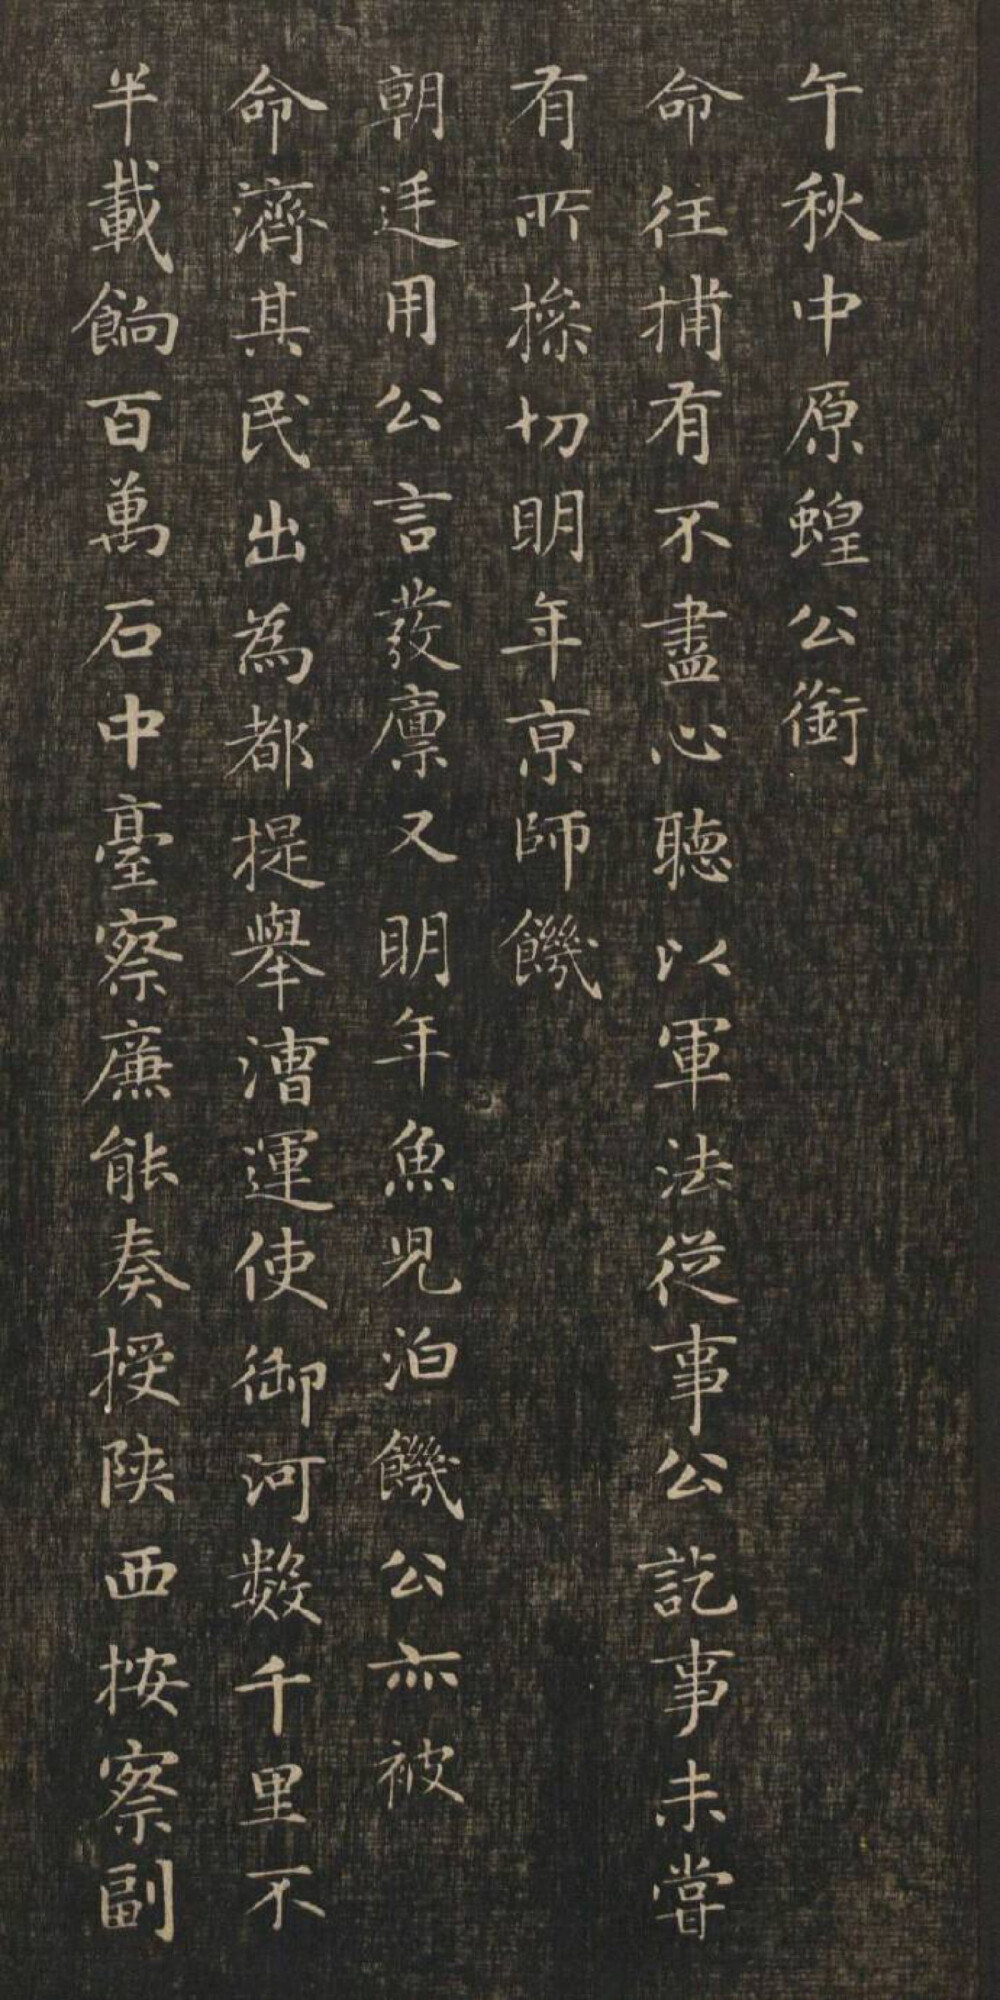 午秋中原蝗公銜
命往捕有不盡心聽以軍法從事公訖事未嘗
有所搽切明年京師饑
朝廷用公言發廪又明年魚児泊饑公亦被
命濟其民出為都提舉漕運使御河數千里不
半載餉百萬石中臺察廉能奏授陝西按察副